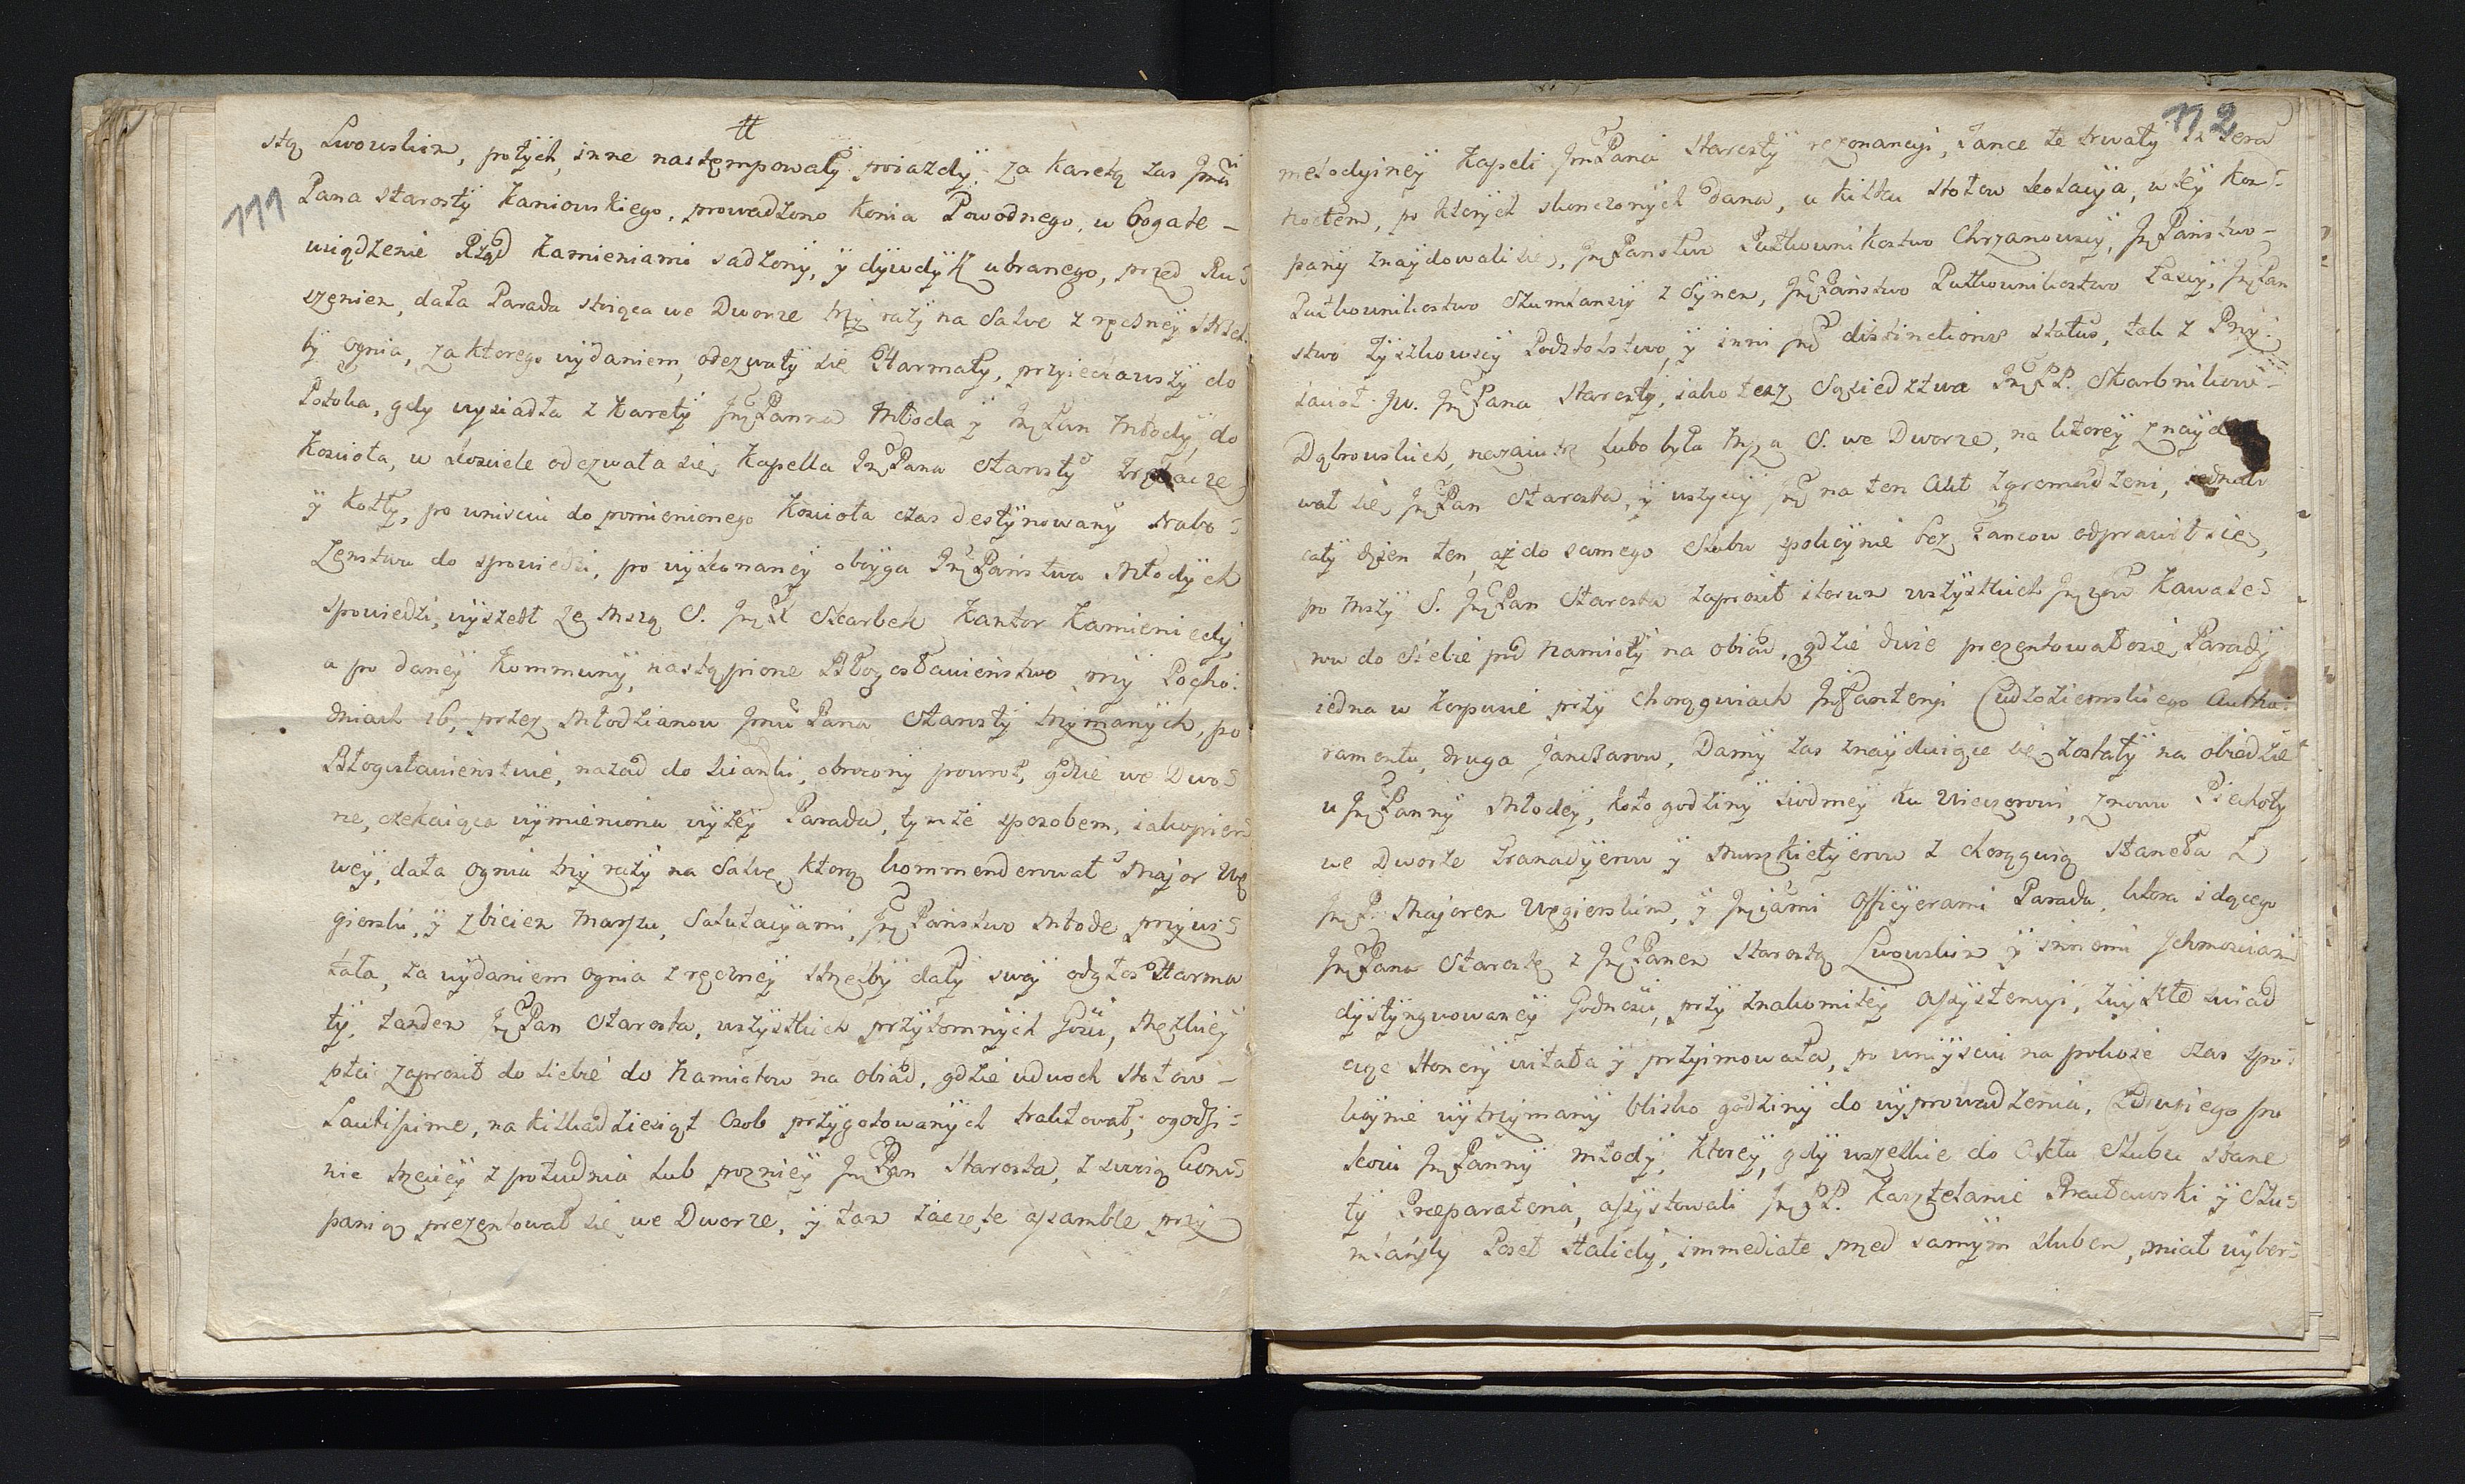 #
111
stą Lwowskim, potych inne nastempowały poiazdy, za karetą zas Jmci
Pana starosty Kaniowskiego, prowadzono Konia Powodnego, w bogate-
Rząd Kamieniami sadzony, y dywdyk ubranego, przed Ru-
szeniem, dała Parada stoiąca we Dworze trzy razy na Salve z ręczney strzel-
by ognia, za ktorego wydaniem, odezwały się Harmaty, przyiechawszy do
Potoka, gdy wysiadła z Karety Jmć Panna Młoda y Jmć Pan Młody, do
Koscioła, w Kosciele odezwała się Kapella Jmć Pana Starosty Trębacze
y Kotły, po wnisciu do pomienionego Koscioła czas destynowany Nabo-
zenstwu do spowiedzi, po wykonaney oboyga Jmć Państwa Młodych
spowiedzi, wyszedł ze Mszą S. Jmć X Skarbek Kantor Kamieniecki,
a po daney Kommuny, nastąpione Błogosławieństwo, przy Pocho-
dniach 16, przez Młodzianow Jmci Pana Starosty trzymanych, po
Błogosławieństwie, nazad do obrocony powrot, gdzie we Dwo-
rze, czekaiąca wymieniona wyzey Parada, tymze sposobem, iakopier-
wey, dała ognia trzy razy na Salve, ktorą kommenderował Major Wę
gierski, y z biciem Marszu, Salutacyami, Jmć Państwo Młode przywi-
tała, za wydaniem ognia z ręczney strzelby dały swoy odgłos Harma
ty, tandem Jmć Pan Starosta, wszystkich przytomnych Gosci, Męzkiey
płci zaprosił do siebie do Namiotow na obiad, gdzie u dwoch stołow-
Lautissime, na kilkadziesiąt Osob przygotowanych traktował, ogodzi-
nie trzeciey z południa lub pozniey Jmć Pan Starosta, z swoią kom-
panią prezentował się we Dworze, y tam zaczęte assamble przy

112
melodyiney Kapeli Jmć Pana Starosty rezonancyi, Tance te trwały
po ktorych skonczonych dana, u kilku stołow kolacya, w tey Kom-
pany znaydowali się, Jmć Państwo Pułkownikostwo Chrzanowscy, Jmć Państwo-
Pułkownikostwo Szumlanscy z Synem, Jmć Państwo Pułkownikostwo Łascy, Jmć Pan
stwo Zyszkowscy Podstolstwo, y inni Jmć distinctionis status, tak z Przy-
iacioł Jw. Jmć Pana Starosty, iako tesz Sąsiedztwa Jmć PP. Skarbnikow-
Dąbrowskich, nazaiutrz lubo była Msza S. we Dworze, na ktorey znaydo
wał się Jmć Pan Starosta, y wszyscy Jmć na ten Akt zgromadzeni, iednak
cały dzien ten, aż do samego Slubu spokoynie bez Tancow odprawił się,
po Mszy S. Jmć Pan Starosta zaprosił wszystkich Kawale-
row do siebie pod Namioty na obiad, gdzie dwie prezentowały sie Parady
iedna w Korpusie przy chorągwiach Jnfanteryi Cudzoziemskiego Autho-
ramentu, druga Janczarow, Damy zas znayduiące się zostały na obiedzie
u Jmć Panny Młodey, koło godziny siodmey ku Wieczorowi, znowu Piechoty
we Dworze Granadyerow y Muszkietyerow z chorągwią staneła z
Jmć P. Majorem Węgierskim, y Officyerami Parada, ktora idącego
Jmć Pana Starostę z Jmć Panem Starostą Lwowskim y innemi Jchmosciami
dystyngwowaney Godnosci, przy znakomitey assystencyi,
witała y przyimowała, po wniysciu na pokoie czas spo-
koynie wytrzymany blisko godziny do wyprowadzenia, z drugiego po
koiu Jmć Panny młody, Ktorey, gdy wszelkie do Aktu Slubu stane
ły Praeparatoria, assystowali Jmć PP. Kasztelanic Bracławski y Szu-
mlański Poseł Halicki, immediate przed samym slubem, miał wybor-